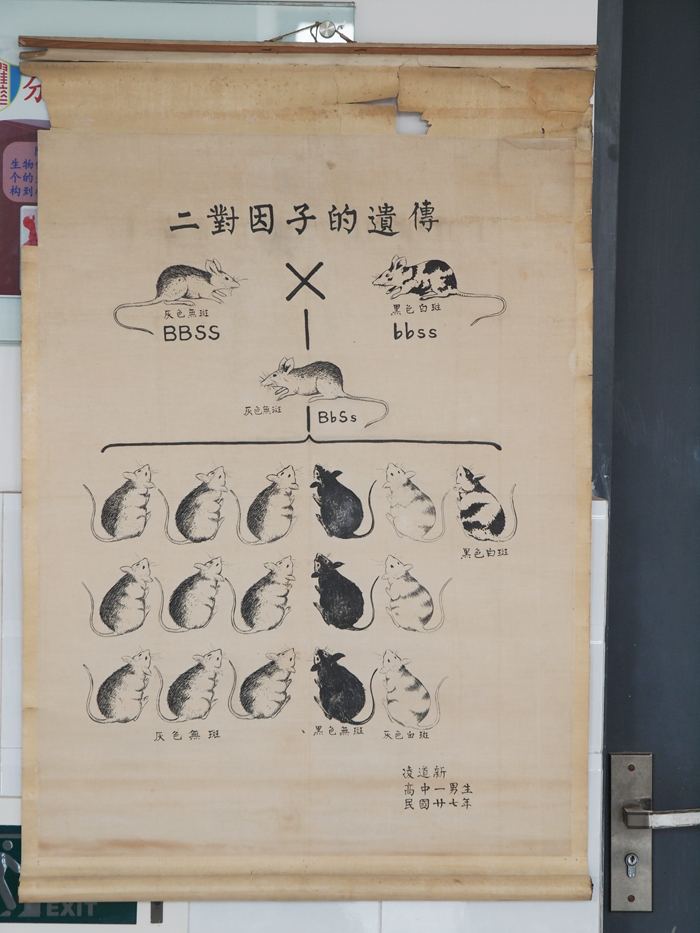 分
生物
个的
构到
二對因子的遺傳
灰色無斑
BBSS
黑色白斑
bbss
灰色無斑
BbSs
黑色白斑
灰色無斑
黑色無斑
灰色白斑
凌道新
高中一男生
民國廿七年
EXIT